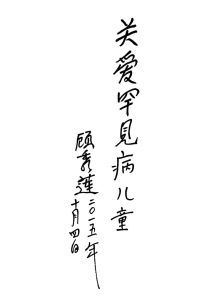 关爱罕見病儿童
顾秀莲
二〇一五年
十月四日